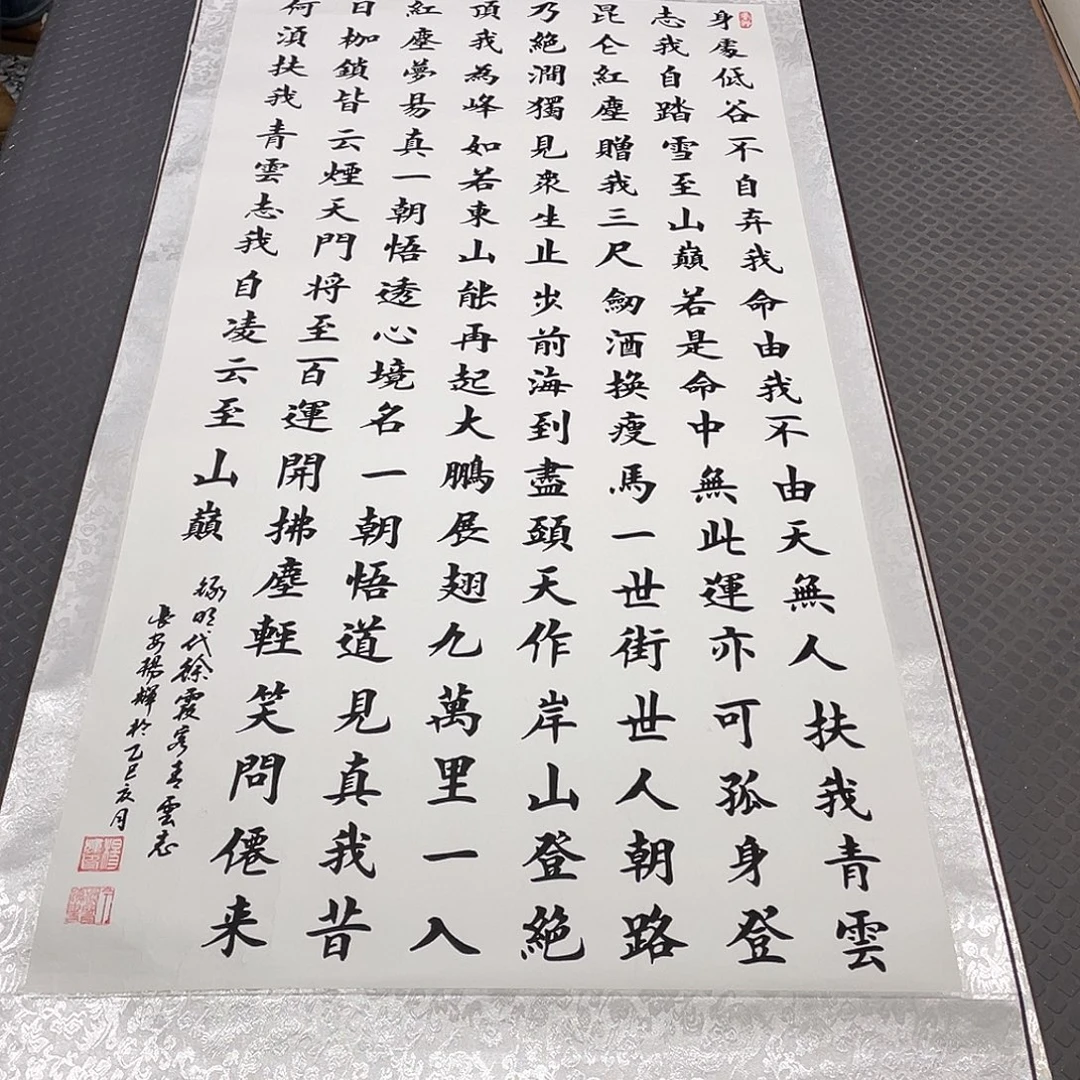 身處低谷不自弃我命由我不由天無人扶我青雲
志我自踏雪至山巔若是命中無此運亦可孤身登
昆仑紅塵贈我三尺劒酒換瘦馬一世街世人朝路
乃絕澗獨見衆生止步前海到盡頭天作岸山登絕
頂我為峰如若東山能再起大鵬展翅九萬里一入
紅塵夢易真一朝悟透心境名一朝悟道見真我昔
日枷鎖皆云煙天門将至百運開拂塵輕笑問僊来
何須扶我青雲志我自凌云至山巔
錄明代徐霞客青雲志
長安楊輝於乙巳夏月